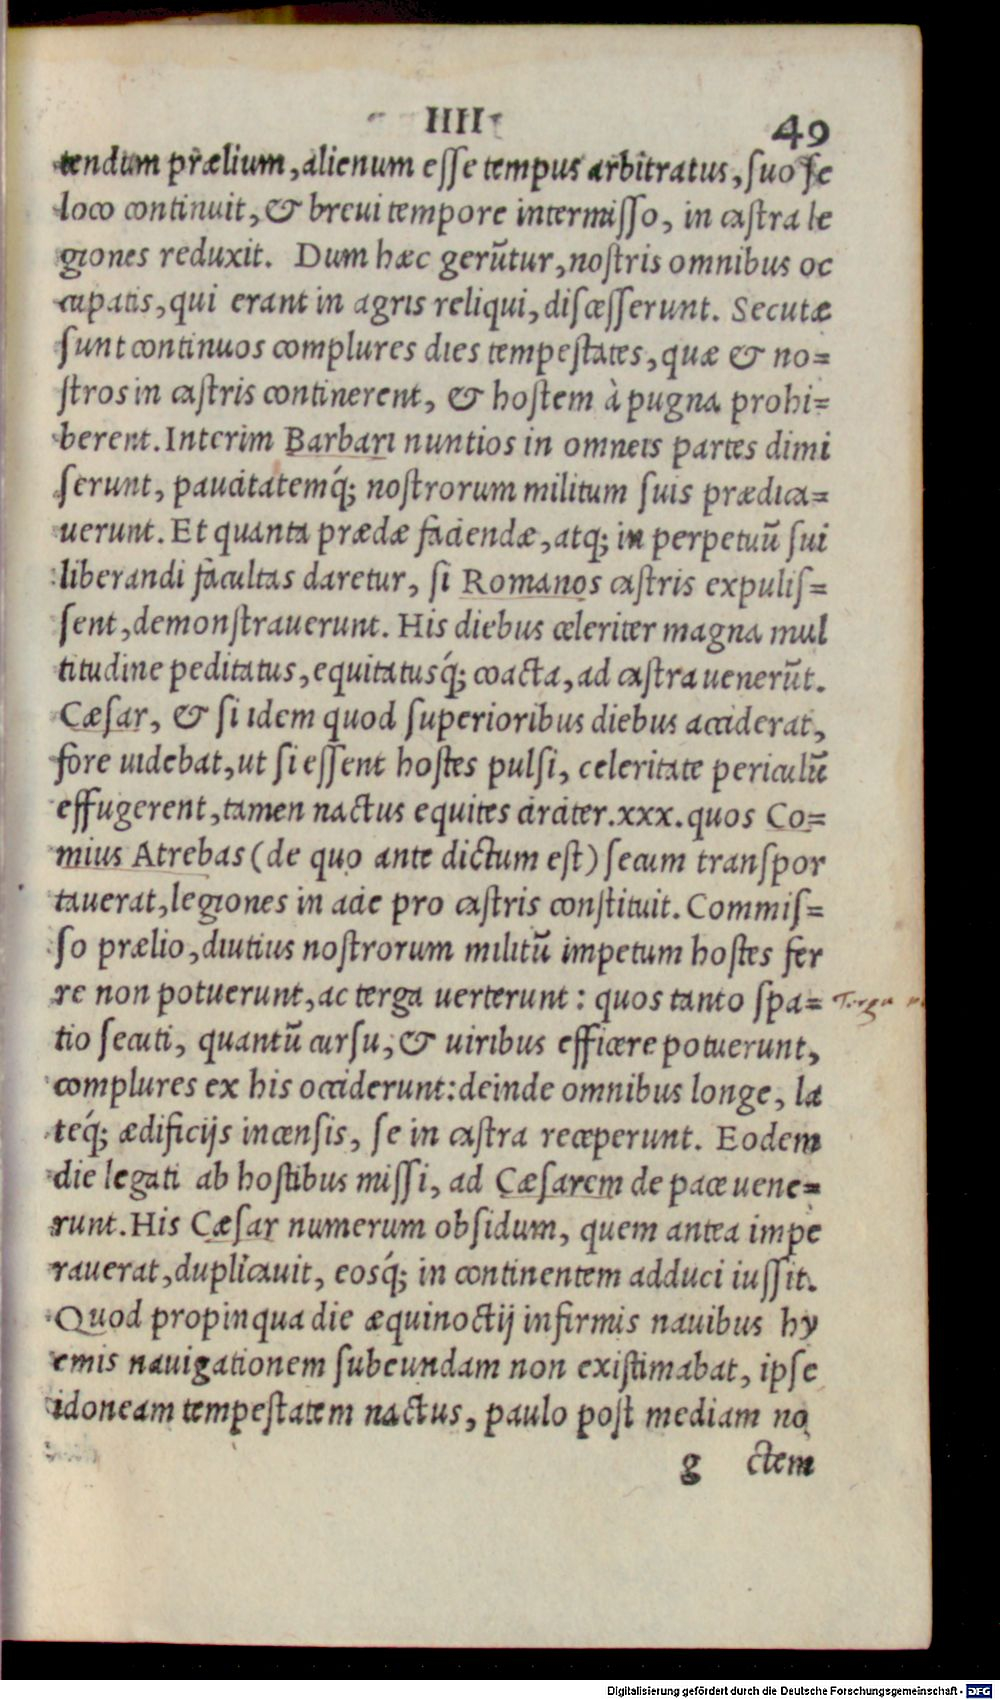 IIII
49
tendum prælium, alienum esse tempus arbitratus, suo se
loco continuit, & brevi tempore intermisso, in castra le
giones reduxit. Dum hæc gerūtur, nostris omnibus oc
cupatis, qui erant in agris reliqui, discesserunt. Secutæ
sunt continuos complures dies tempestates, quæ & no=
stros in castris continerent, & hostem à pugna prohi=
berent. Interim Barbari nuntios in omneis partes dimi
serunt, paucitatemq́; nostrorum militum suis prædica=
uerunt. Et quanta prædæ faciendæ, atq; in perpetuū sui
liberandi facultas daretur, si Romanos castris expulis=
sent, demonstrauerunt. His diebus celeriter magna mul
titudine peditatus, equitatusq́; coacta, ad castra uenerūt.
Cæsar, & si idem quod superioribus diebus acciderat,
fore uidebat, ut si essent hostes pulsi, celeritate periculū
effugerent, tamen nactus equites circiter.xxx. quos Co=
mius Atrebas (de quo ante dictum est) secum transpor
tauerat, legiones in acie pro castris constituit. Commis=
so prælio, diutius nostrorum militū impetum hostes fer
re non potuerunt, ac terga uerterunt: quos tanto spa=
Terga
tio secuti, quantū cursu, & uiribus efficere potuerunt,
complures ex his occiderunt: deinde omnibus longe, la
teq́; ædificijs incensis, se in castra receperunt. Eodem
die legati ab hostibus missi, ad Cæsarem de pace uene=
runt. His Cæsar numerum obsidum, quem antea impe
rauerat, duplicauit, eosq́; in continentem adduci iussit.
Quod propinqua die æquinoctij infirmis nauibus hy
emis nauigationem subeundam non existimabat, ipse
idoneam tempestatem nactus, paulo post mediam no
g ctem
Digitalisierung gefördert durch die Deutsche Forschungsgemeinschaft - DFG